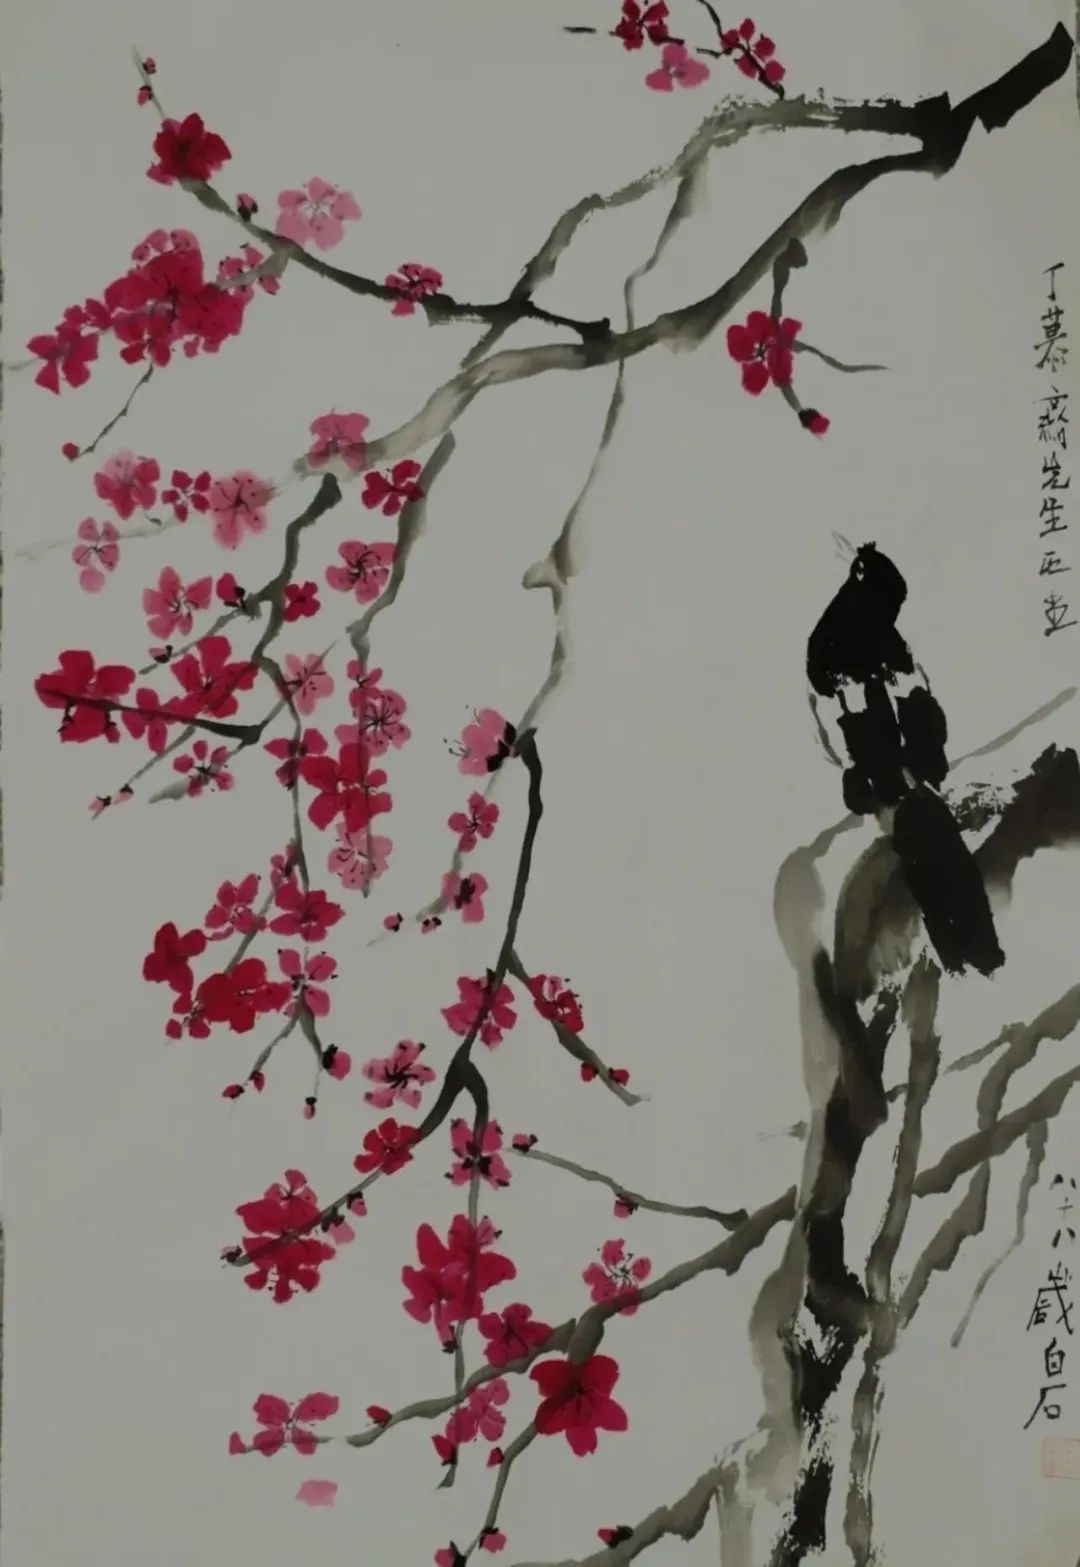 丁慕斋先生正画
八十八歲白石